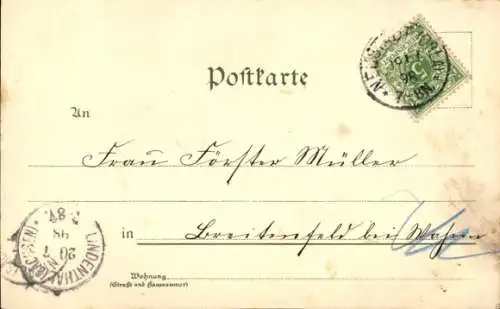 Postkarte
An
Frau Förster Müller
in Breitenfeld bei Wahren
Wohnung
(Straße und Hausnummer)
5
LINDENTHAL (SACHSEN)
20
98